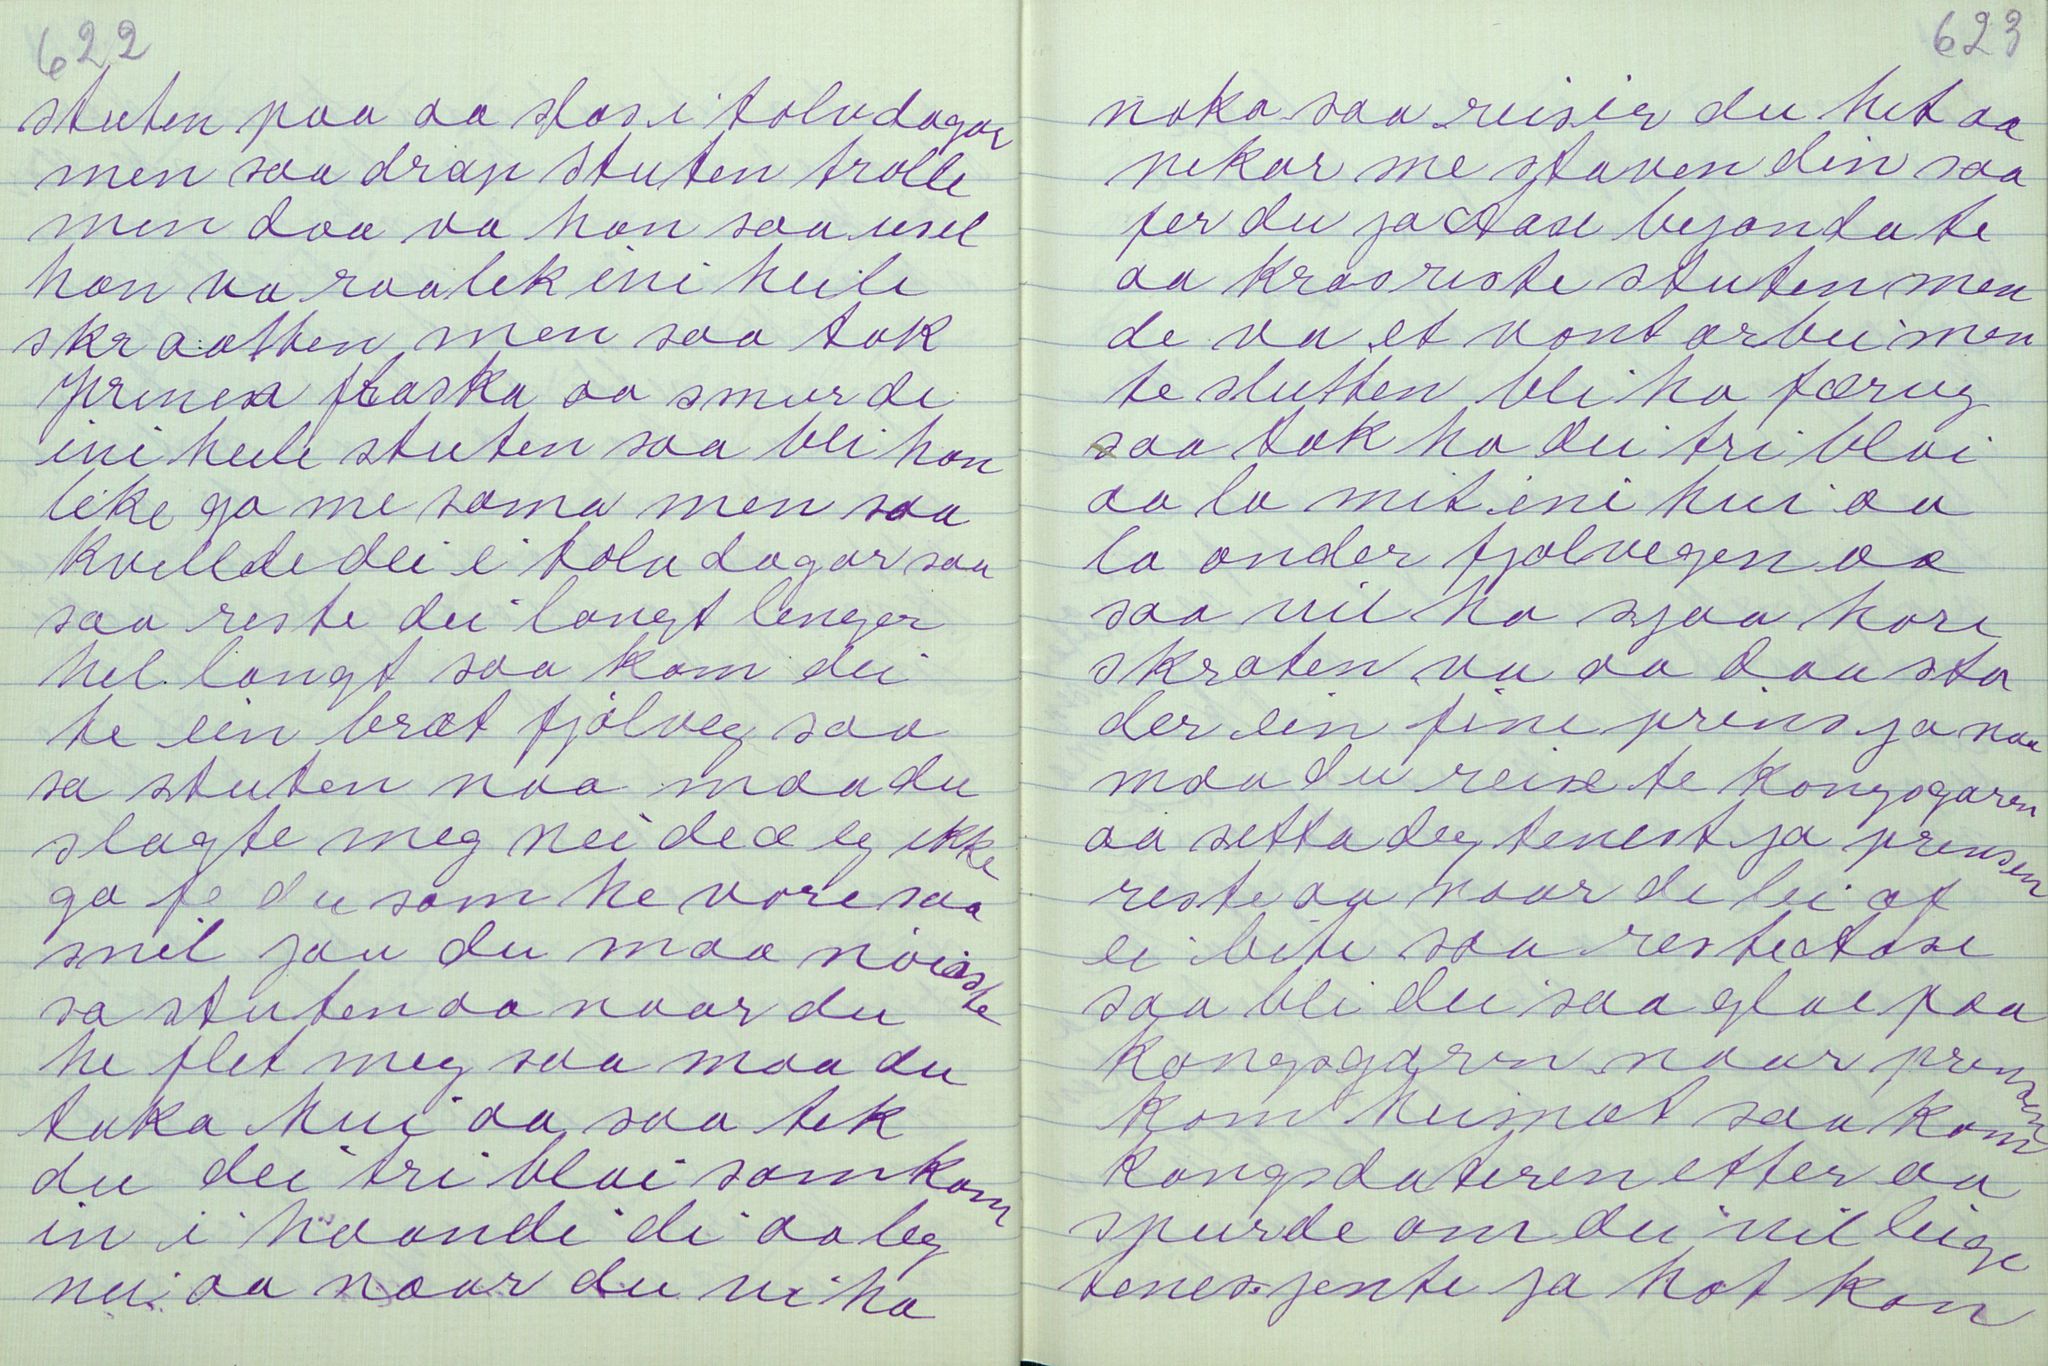 622
stuten paa aa slas i tolv dagar
men saa drap stuten trolle
men daa va han saa usel
han va raalek ini heile
skraatten men saa tok
prinsa flaska aa smurde
ini heile stuten saa bli han
like go me soma men saa
kvillde dei i tolv dagar saa
saa reste dei langt lenger
hel langt saa kom dei
te ein bræt fjølveg saa
sa stuten naa maa du
slagte meg nei de æ eg ikke
go fe du som he vore saa
snil jau du maa nøiaste
sa stuten aa naar du
he flet meg saa maa du
taka hui aa saa tek
du dei tri blai som kom
in i haandi di aa leg
nei aa naar du vi ha
623
noka saa reiser du het aa
pekar me staven din saa
fer du ja Aase bejonda te
aa kraoreste stuten men
de va et vont arbei men
te slutten bli ho færug
saa tok ho dei tri blai
aa la mit ini hui aa
la onder fjolvegen aa
saa vil ho sjaa kore
skroten va aa daa sto
der ein fine prins ja naa
maa du reise te kongsgaren
aa setta deg tenest ja prinsen
reste aa naar de lei af
ei bite saa reste Aase
saa bli dei saa glae paa
kongsgaren naar prinsen
kom heimat saa kom
kongsdateren etter aa
spurde om dei vil leige
tenesjente ja kot kan